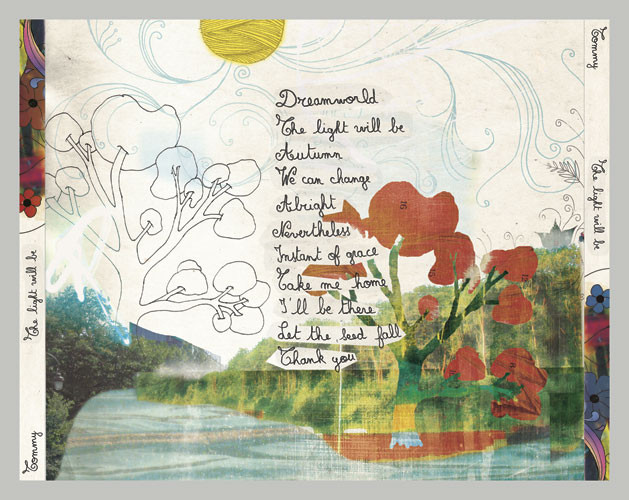 Dreamworld
The light will be
Autumn
We can change
Alright
Nevertheless
Instant of grace
Take me home
I'll be there
Let the seed fall
Thank you
Tommy
The light will be
Tommy
The light will be